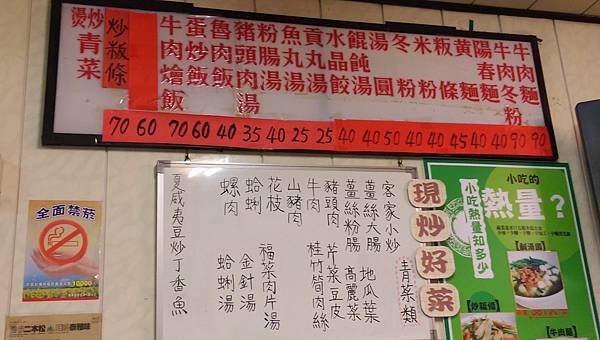 牛肉麵
牛肉冬粉
陽春麵
黃麵
粄條
米粉
冬粉
湯圓
餛飩湯
水晶餃
貢丸湯
魚丸湯
粉腸湯
豬頭湯
魯肉飯
蛋炒飯
牛肉燴飯
炒粄條
燙炒青菜
70 60 70 60 40 35 40 25 25 40 40 50 40 40 40 45 40 90 90
現炒好菜
客家小炒 青菜類
薑絲大腸 地瓜葉
薑絲粉腸 高麗菜
豬頭肉 芹菜豆皮
牛肉 桂竹筍肉絲
山豬肉
花枝 福菜肉片湯
蛤蜊 金針湯
螺肉 蛤蜊湯
夏威夷豆炒丁香魚
小吃的
熱量?
小吃熱量知多少
【鹹湯圓】
【炒粄條】
【牛肉麵】
全面禁菸
10000
二本松